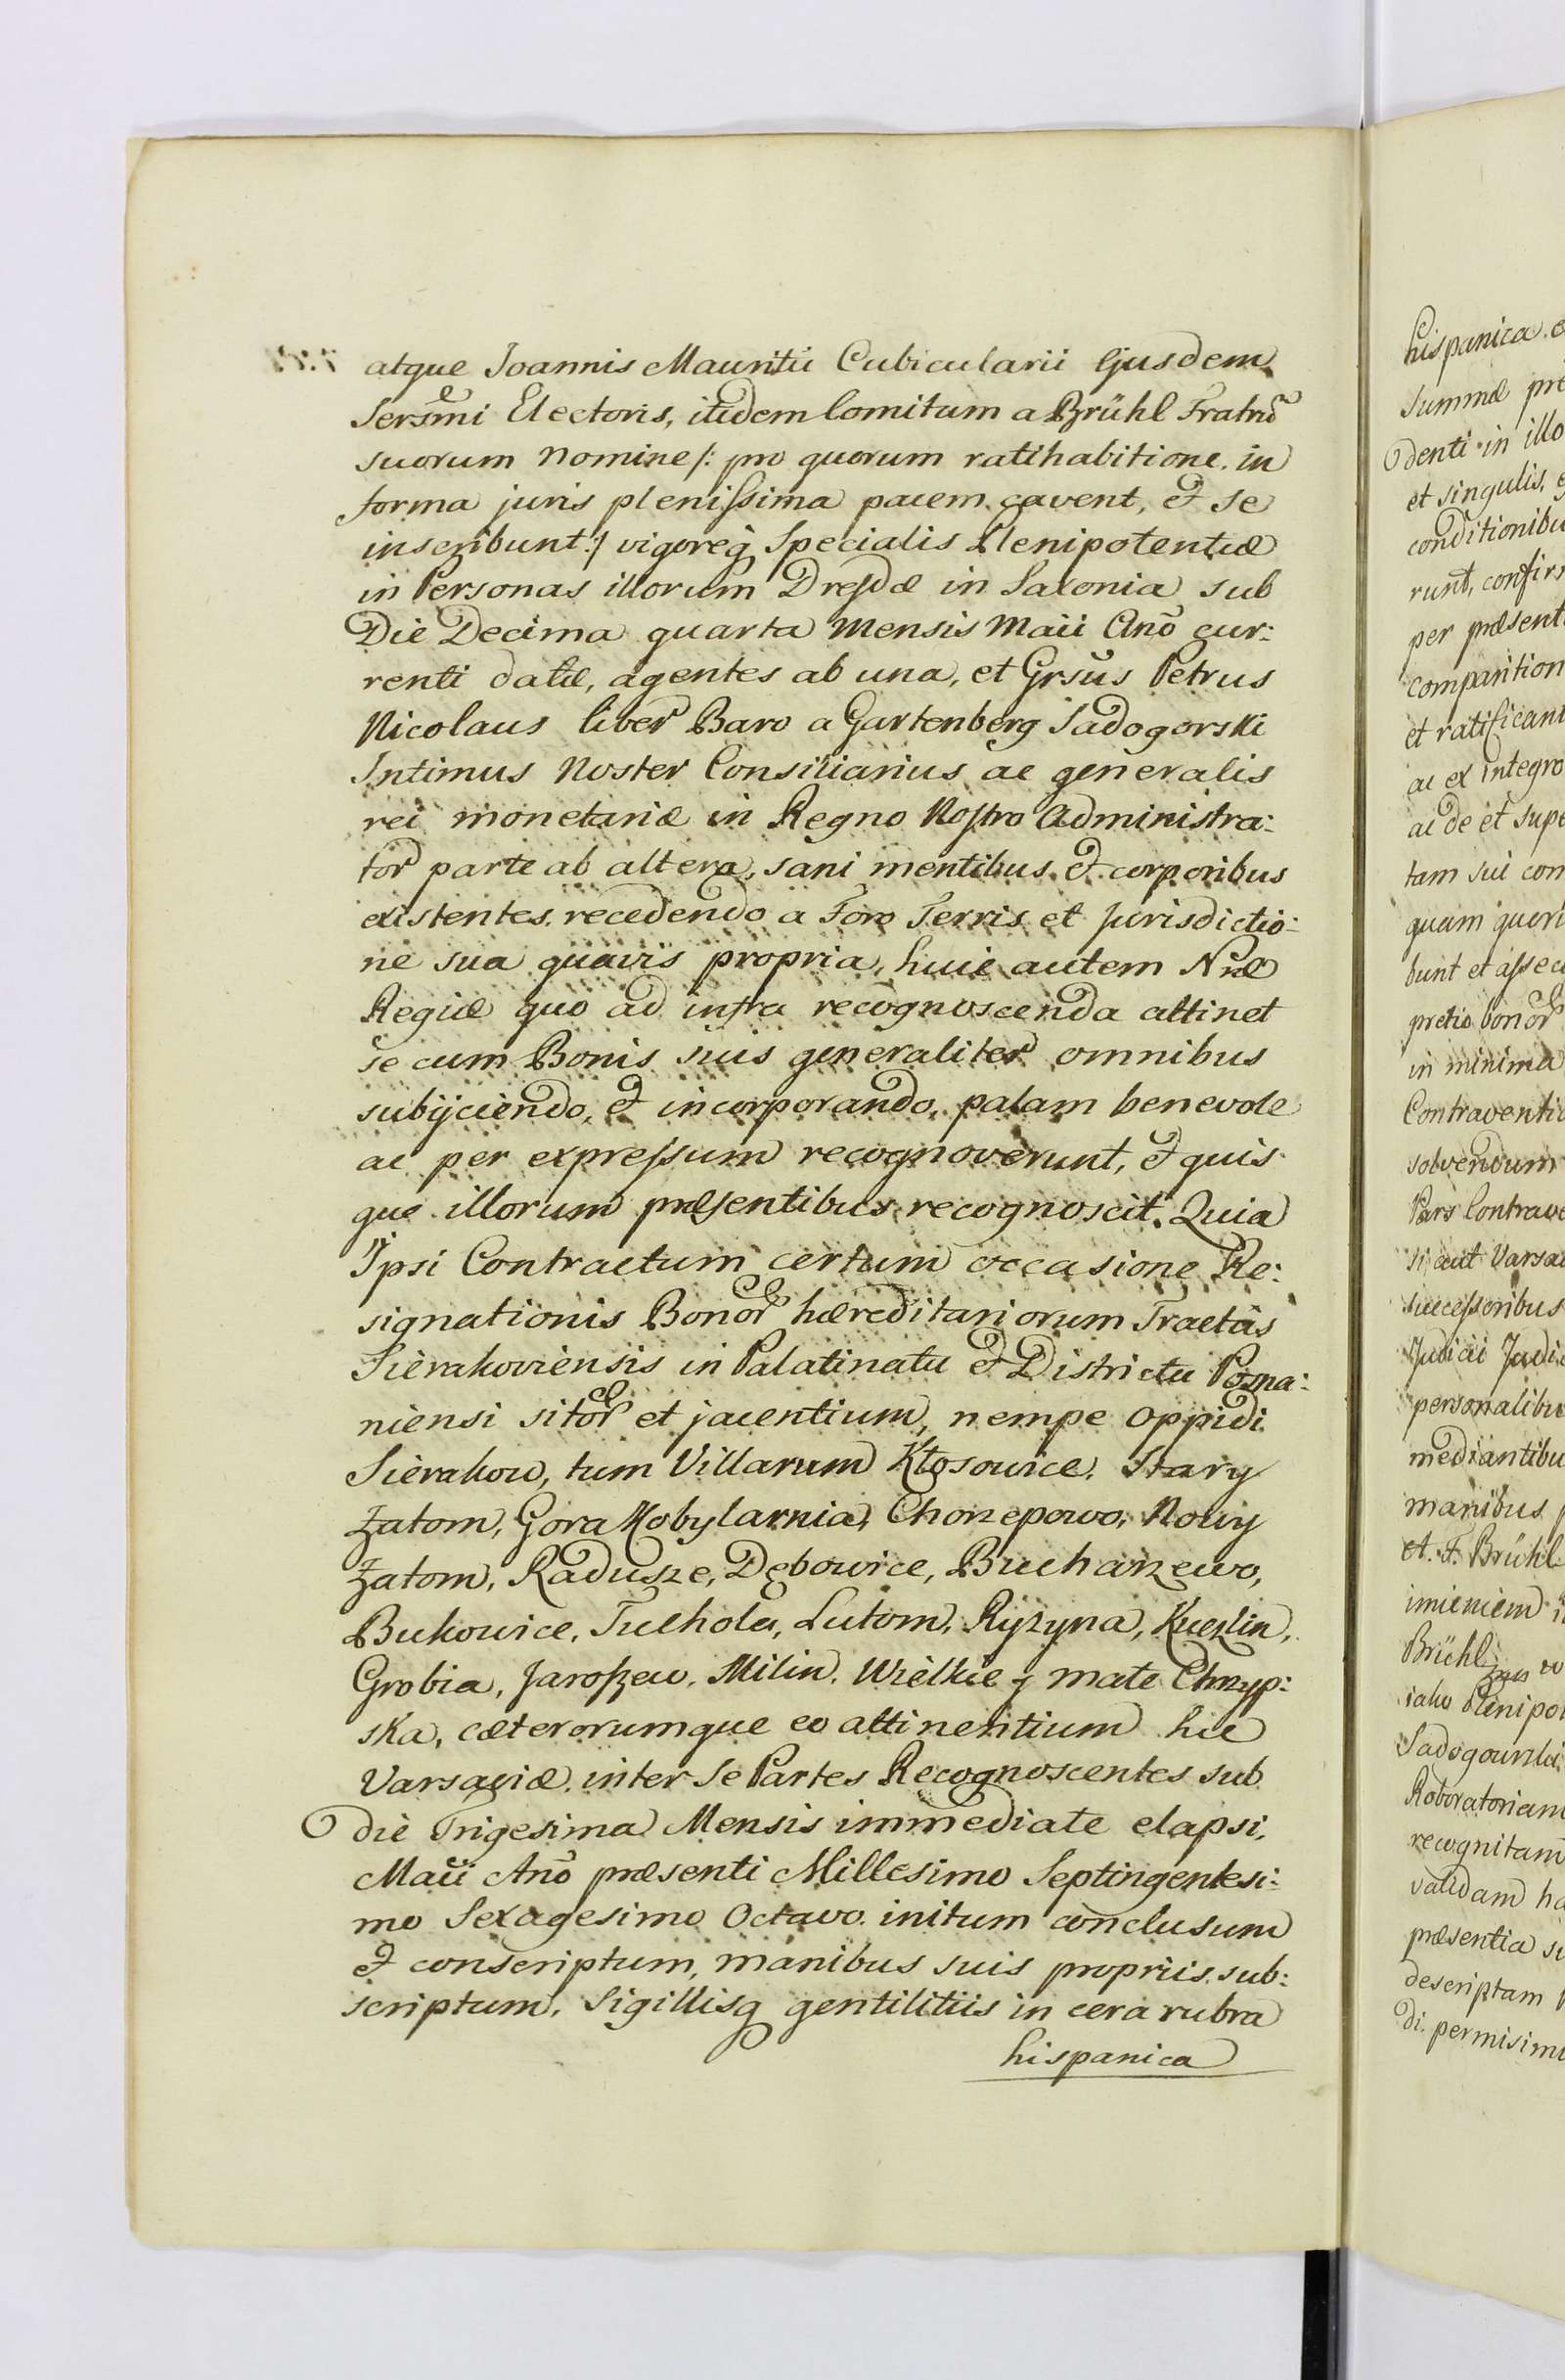 atque Joannis Mauritii Cubicularii Ejusdem
Sersm̃i Electoris, itidem Comitum a Brühl Fratrũ
suorum nomine /: pro quorum ratihabitione in
forma juris plenissima pacem cavent, et se
inscribunt :/ vigoreq̃ Specialis Plenipotentiæ
in Personas illorum Dresdæ in Saxonia sub
Die Decima quarta Mensis Maii Anõ cur:
renti datæ, agentes ab una, et Grsũs Petrus
Nicolaus liber Baro a Gartenberg Sadogorski
Intimus Noster Consiliarius ac generalis
rei monetariæ in Regno Nostro Administra:
tor parte ab altera, sani mentibus et corporibus
existentes, recedendo a Foro Terris et Jurisdictio:
ne sua quavis propria, huic autem Nræ
Regiæ quo ad infra recognoscenda attinet
se cum Bonis suis generaliter omnibus
subijciendo, et incorporando, palam benevole
ac per expressum recognoverunt, et quis
que illorum præsentibus recognoscit. Quia
Ipsi Contractum certum occasione Re:
signationis Bonor hæreditariorum Tractûs
Sierakoviensis in Palatinatu et Districtu Pozna:
niensi sitor et jacentium, nempe Oppidi
Sierakow, tum Villarum Kłosowice, Stary
Zatom, Gora Kobylarnia, Chorzepowo, Nowy
Zatom, Radusze, Dębowice, Bucharzewo,
Bukowice, Tuchola, Lutom, Ryżyna, Kuczlin,
Grobia, Jaroszew, Milin, Wielkie y małe Chrzyp:
ska, cæterorumque eo attinentium hic
Varsaviæ inter se Partes Recognoscentes sub
die Trigesima Mensis immediate elapsi,
Maii Anõ præsenti Millesimo Septingentesi:
mo Sexagesimo Octavo initum conclusum
et conscriptum, manibus suis propriis sub:
scriptum, Sigillisq gentilitiis in cera rubra
hispanica
hispanica
Summæ
denti in illo
et singulis,
runt,
ac ex integro
ac de et
tam sui
bunt et
pretio bonor
in minima
solvendum
Pars
si aut
successoribus
Judicii
manibus
et F. Brühl
imieniem
Brühl
iako
recognitam
validam
præsentia
descriptam
di